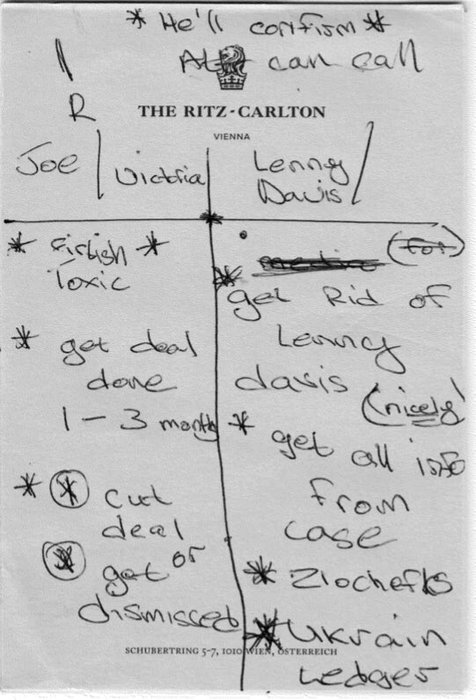 * He'll confirm *
AL can call
R
THE RITZ-CARLTON
VIENNA
Joe
Victoria
Lenny
Davis
* Firtish *
toxic
* get deal
done
1-3 month
* * cut
deal
* or get
dismissed
* get Rid of
Lenny
davis (nicely)
* get all info
from
case
* Zlochefks
* Ukrain
Ledger
SCHUBERTRING 5-7, 1010 WIEN, ÖSTERREICH